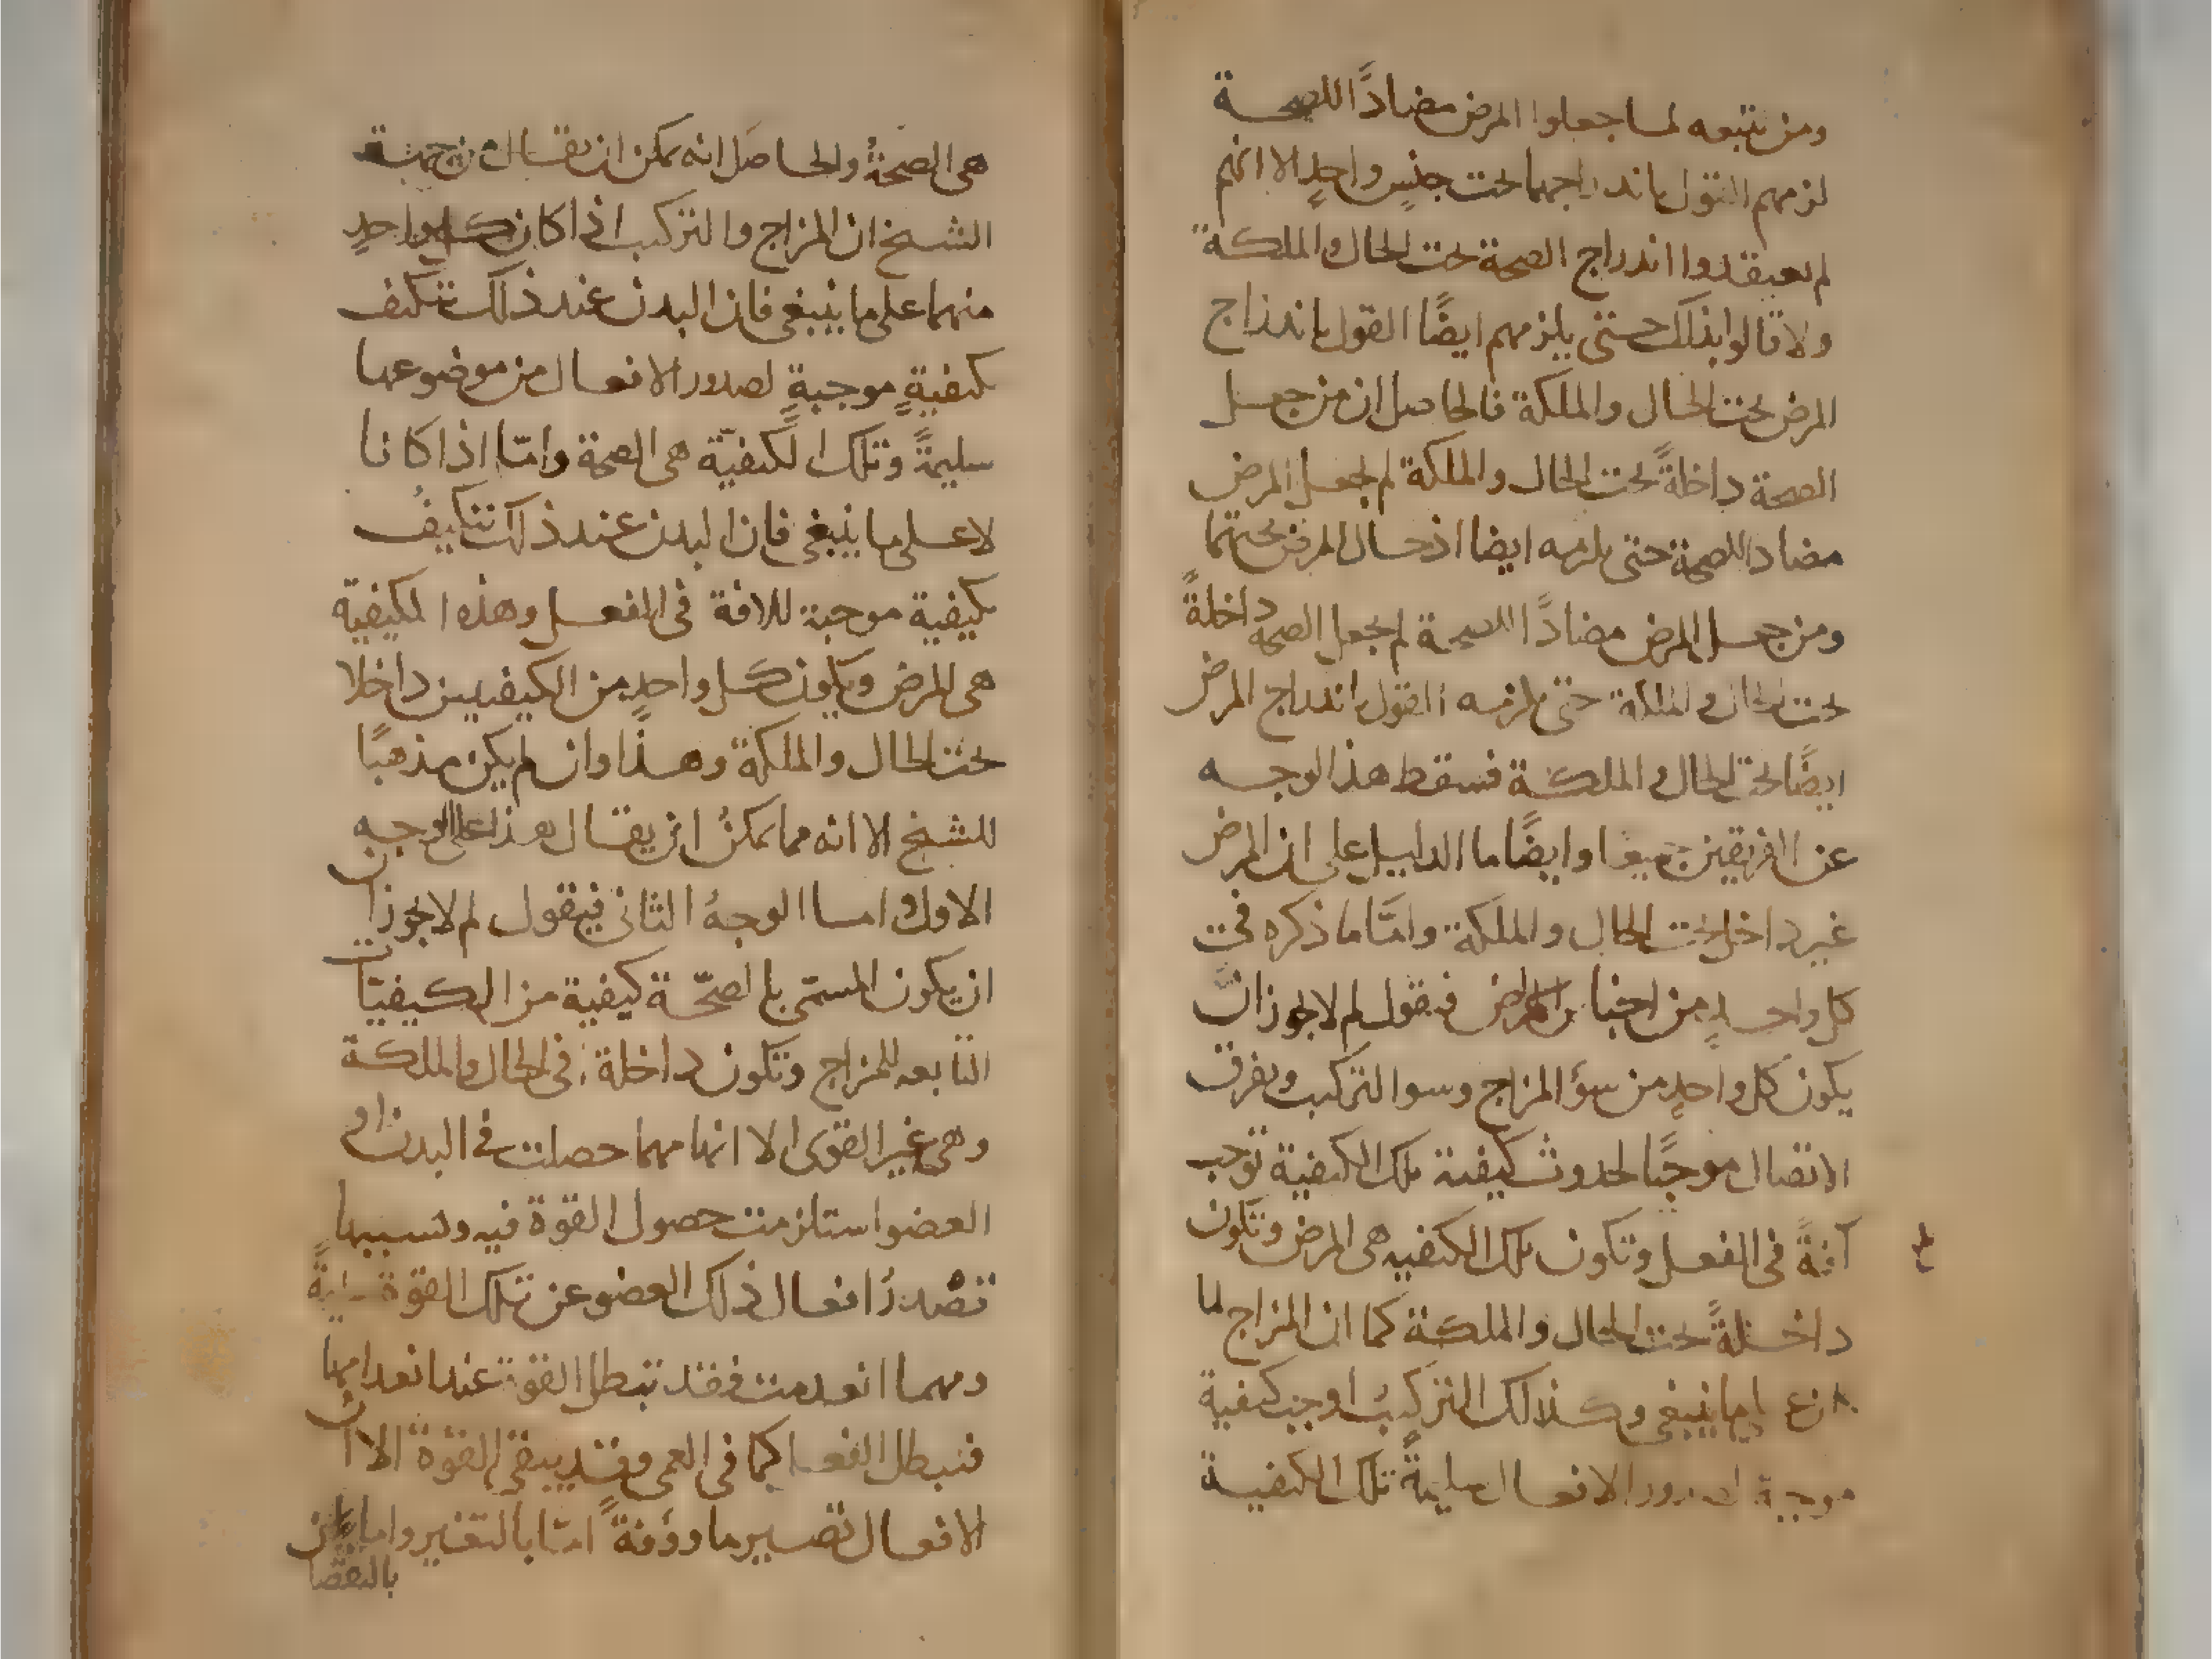 ومن يتبعه لما جعلوا المرض مضادًا للصحة
لزمهم القول باندراجهما تحت جنسٍ واحدٍ الا انهم
لم يعتقدوا اندراج الصحة تحت الحال والملكة
ولا قالوا بذلك حتى يلزمهم ايضًا القول باندراج
المرض تحت الحال والملكة فالحاصل ان من جعل
الصحة داخلةً تحت الحال والملكة لم يجعل المرض
مضادا للصحة حتى يلزمه ايضا ادخال المرض تحتهما
ومن جعل المرض مضادًا للصحة لم يجعل الصحة داخلةً
تحت الحال والملكة حتى يلزمه القول باندراج المرض
ايضًا تحت الحال والملكة فسقط هذا الوجه
عن الفريقين جميعا وايضًا ما الدليل على ان المرض
غير داخل تحت الحال والملكة وامَّا ما ذكره في
كل واحدٍ من اجناس الامراض فيقول لم لا يجوز ان
يكون كل واحدٍ من سوء المزاج وسوا التركيب وتفرق
الاتصال موجبًا لحدوث كيفية تلك الكيفية توجب
آفةً في الفعل وتكون تلك الكيفيه هي المرض وتكون
داخلةً تحت الحال والملكة كما ان المزاج لما
ما ينبغي وكذلك التركيب اوجب كيفية
موجبة لصدور الافعال سليمةً تلك الكيفية
هي الصحةُ والحاصل انه يمكن ان يقال من جهة
الشيخ ان المزاج والتركيب اذا كان كل واحدٍ
منهما على ما ينبغي فان البدن عند ذلك تتكيف
بكيفيةٍ موجبةٍ لصدور الافعال من موضوعها
سليمةً وتلك الكيفيّة هي الصحة وامّا اذا كانا
لا على ما ينبغي فان البدن عند ذلك تتكيفُ
بكيفية موجبة للافة في الفعل وهذه الكيفيّة
هي المرض ويكون كل واحدٍ من الكيفيتين داخلا
تحت الحال والملكة وهذا وان لم يكن مذهبًا
للشيخ الا انه مما يمكنُ ان يقال هذا على الوجه
الاول واما الوجهُ الثاني فيقول لم لا يجوز ان
ان يكون المسمّى بالصحّة كيفية من الكيفيّات
التابعه للمزاج وتكون داخلة في الحال والملكة
وهي غير القوى الا انها مهما حصلت في البدن او
العضو استلزمت حصول القوة فيه وبسببها
تصدرُ افعال ذلك العضو عن تلك القوة
ومهما انعدمت فقد تبطل القوة عند انعدامها
فتبطل الفعل كما في العمى وقد يبقى القوة الا ان
الافعال تصير ماووفةً امّا بالتغير واما
بالنقصا